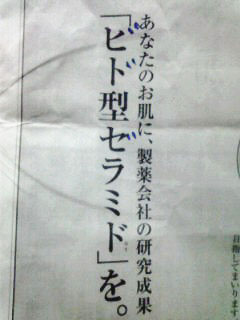 目指してまいります
あなたのお肌に、製薬会社の研究成果
「ビド型ゼラミド」を。